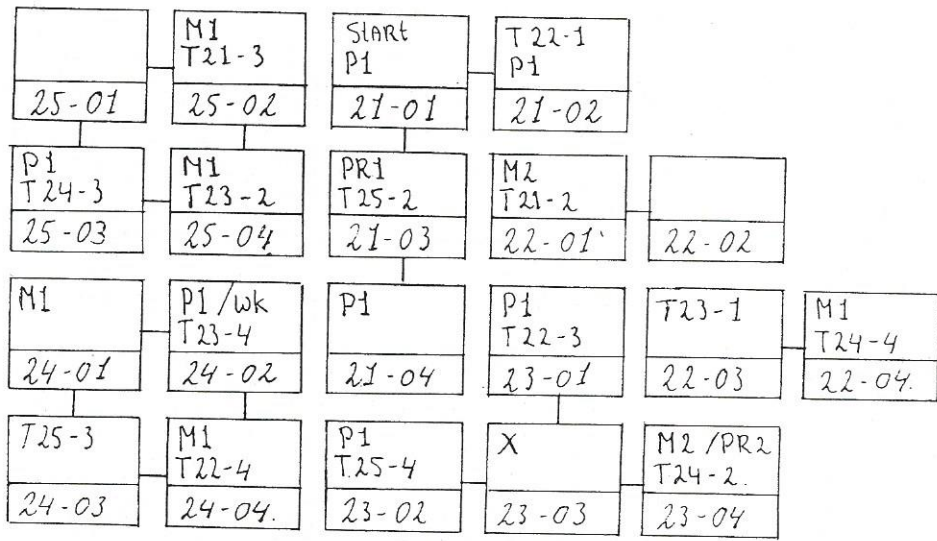 M1
T21-3
25-01
25-02
START
P1
21-01
T22-1
P1
21-02
P1
T24-3
25-03
M1
T23-2
25-04
PR1
T25-2
21-03
M2
T21-2
22-01
22-02
M1
24-01
P1/wk
T23-4
24-02
P1
21-04
P1
T22-3
23-01
T23-1
22-03
M1
T24-4
22-04.
T25-3
24-03
M1
T22-4
24-04.
P1
T25-4
23-02
X
23-03
M2/PR2
T24-2.
23-04